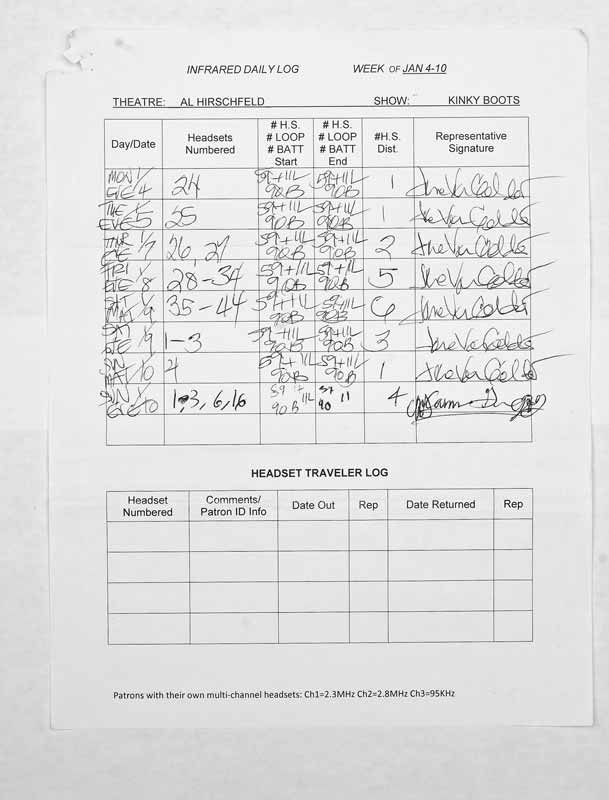 INFRARED DAILY LOG WEEK OF JAN 4-10
THEATRE: AL HIRSCHFELD SHOW: KINKY BOOTS
Day/Date
Headsets Numbered
# H.S. # LOOP # BATT Start
# H.S. # LOOP # BATT End
#H.S. Dist.
Representative Signature
MON 1/ EVE 4 24 59+11L 90B 59+11L 90B 1
TUE 1/ EVE 5 25 59+11L 90B 59+11L 90B 1
THR 1/ EVE 7 26, 27 59+11L 90B 59+11L 90B 2
FRI 1/ EVE 8 28-34 59+11L 90B 59+11L 90B 5
SAT 1/ MAT 9 35-44 59+11L 90B 59+11L 90B 6
SAT 1/ EVE 9 1-3 59+11L 90B 59+11L 90B 3
SUN 1/ MAT 10 4 59+11L 90B 59+11L 90B 1
SUN 1/ EVE 10 1,3, 6, 16 59 11L 90B 59 11 90 4
HEADSET TRAVELER LOG
Headset Numbered
Comments/ Patron ID Info
Date Out
Rep
Date Returned
Rep
Patrons with their own multi-channel headsets: Ch1=2.3MHz Ch2=2.8MHz Ch3=95KHz